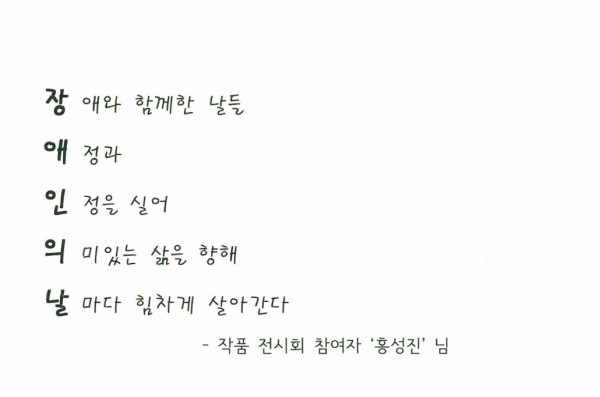 장 애와 함께한 날들
애 정과
인 정을 실어
의 미있는 삶을 향해
날 마다 힘차게 살아간다
- 작품 전시회 참여자 ‘홍성진’ 님